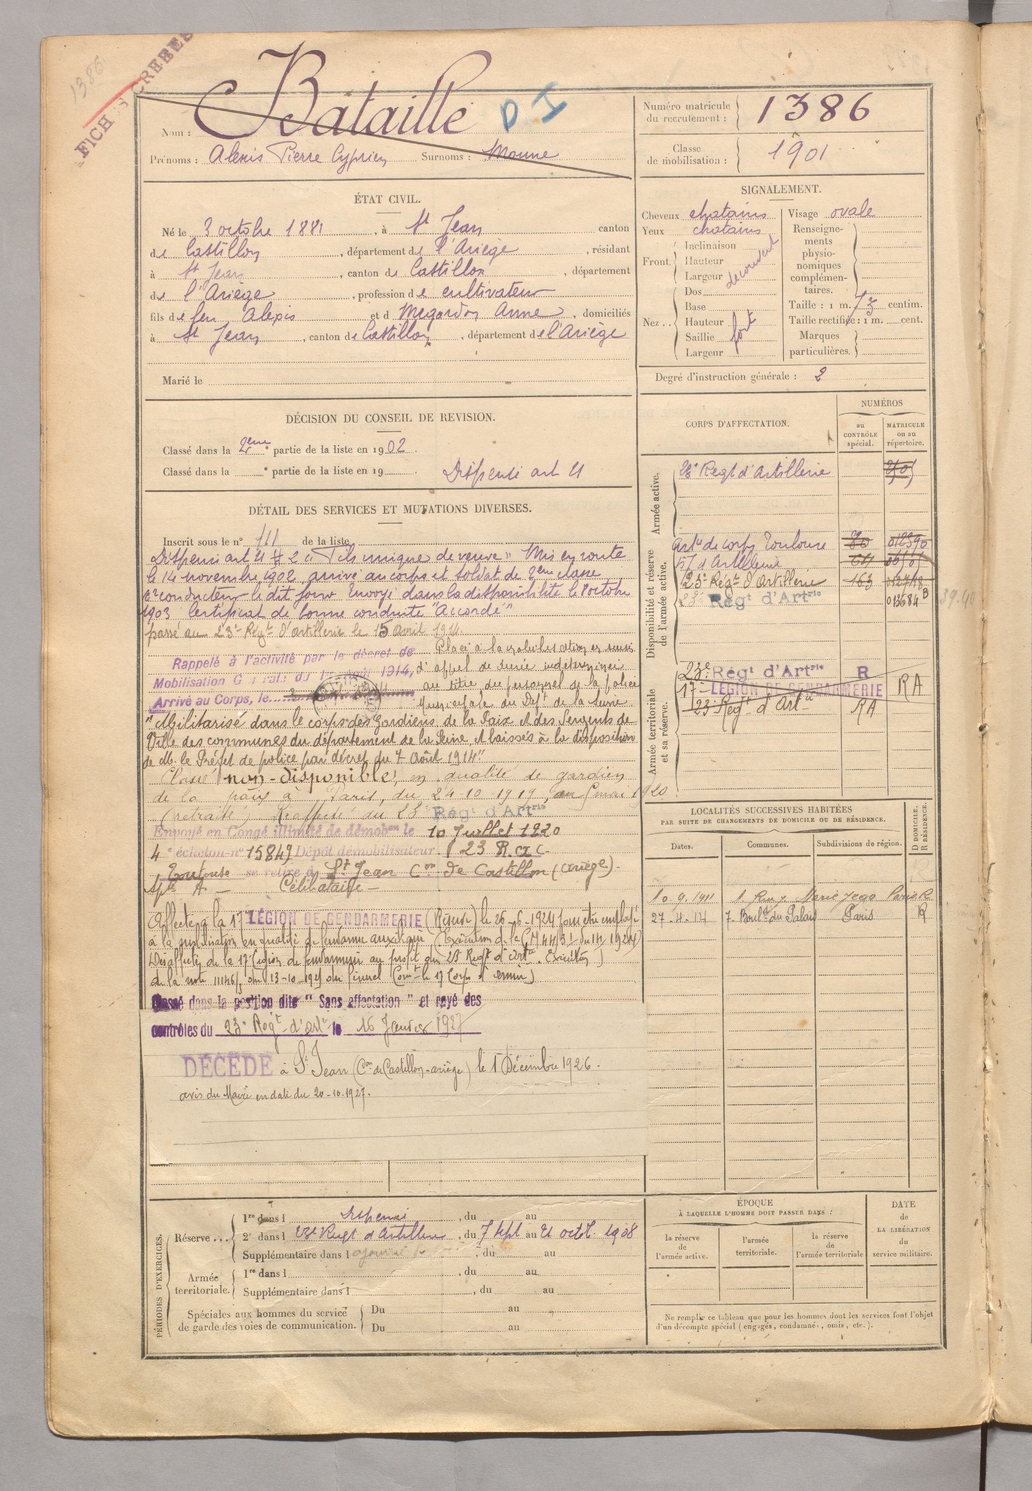 1386
FICHES CREEES
Nom : Bataille D I
Prénoms : Alexis Pierre Cyprien Surnoms : Moune
Numéro matricule du recrutement : 1386
Classe de mobilisation : 1901
ÉTAT CIVIL.
Né le 3 octobre 1881, à St Jean canton
de Castillon, département de l'Ariège, résidant
à St Jean, canton de Castillon, département
de l'Ariège, profession de cultivateur
fils de feu Alexis et d Megardon Anne, domiciliés
à St Jean, canton de Castillon, département de l'Ariège
Marié le
SIGNALEMENT.
Cheveux chatains
Yeux chatains
Front. Inclinaison
Hauteur
Largeur découvert
Nez.. Dos
Base
Hauteur
Saillie fort
Largeur
Visage ovale
Renseignements physionomiques complémentaires.
Taille : 1 m. 73 centim.
Taille rectifiée : 1 m. cent.
Marques particulières.
Degré d'instruction générale : 2
DÉCISION DU CONSEIL DE REVISION.
Classé dans la 2eme partie de la liste en 1902
Classé dans la e partie de la liste en 19 Dispensé art 21
CORPS D'AFFECTATION.
NUMÉROS
au CONTRÔLE spécial.
MATRICULE ou au répertoire.
Armée active.
Régt d'Artillerie
Disponibilité et réserve de l'armée active.
Artie de corps Toulouse
d'Artillerie
23e Régt d'Artillerie 163
23e Régt d'Artrie
Armée territoriale et sa réserve.
23e Régt d'Artrie R
17e LÉGION DE GENDARMERIE RA
23e Régt d'Artie RA
DÉTAIL DES SERVICES ET MUTATIONS DIVERSES.
Inscrit sous le n° 111 de la liste
Dispensé art 21 § 2 "Fils unique de veuve" Mis en route
le 14 novembre 1902 arrivé au corps et soldat de 2eme classe
2e conducteur le dit jour Envoyé dans la disponibilité le 8 octobre
1903 Certificat de bonne conduite "Accordé"
passé au 23e Régt d'Artillerie le 15 avril 1914
Rappelé à l'activité par le décret de
Mobilisation Générale du 1er Août 1914,
Arrivé au Corps, le 2
Placé à la mobilisation en sursis
d'appel de durée indéterminée
au titre du personnel de la police
Municipale du Dépt de la Seine
"Militarisé dans le corps des Gardiens de la Paix et des Sergents de
Ville des communes du département de la Seine, et laissés à la disposition
de M. le Préfet de police par décret du 7 Août 1914"
Classé non-disponible, en qualité de gardien
de la paix à Paris, du 24-10-1919 au mai 1920
(retraité) Réaffecté au 23 Régt d'Artrie
Envoyé en Congé illimité de démobon le 10 Juillet 1920
4e échelon n° 15849 Dépôt démobilisateur 23 R.a.c.
Toulouse se retire à St Jean Con de Castillon (Ariège)
Célibataire
Affecté à la 17e LÉGION DE GENDARMERIE (Réserve) le 26-6-1924 pour être employé
à la mobilisation en qualité de gendarme auxiliaire
Désaffecté de la 17e Légion de gendarmerie au profit du 23 Régt d'Artie. Exécution
de la note 11146/3 du 13-10-1925 du Général Comt le 17 Corps d'armée)
Classé dans la position dite " Sans affectation " et rayé des
contrôles du 23e Régt d'Artie le 16 Janvier 1927
DÉCÉDÉ à St Jean (Con de Castillon-ariège) le 1 Décembre 1926.
avis du Maire en date du 20-10-1927.
LOCALITÉS SUCCESSIVES HABITÉES
PAR SUITE DE CHANGEMENTS DE DOMICILE OU DE RÉSIDENCE.
Dates. Communes. Subdivisions de région. D DOMICILE. R RÉSIDENCE.
10.9.1911 Paris R
27.4.14 7. Boulard du Palais Paris R
PÉRIODES D'EXERCICES.
Réserve... 1re dans l dispensé, du au
2e dans l 23e Régt d'Artillerie, du 7 sept au 21 octob. 1908
Supplémentaire dans l, du au
Armée territoriale. 1re dans l, du au
Supplémentaire dans l, du au
Spéciales aux hommes du service de garde des voies de communication. Du au
Du au
ÉPOQUE
À LAQUELLE L'HOMME DOIT PASSER DANS :
la réserve de l'armée active.
l'armée territoriale.
la réserve de l'armée territoriale
DATE de LA LIBÉRATION du service militaire.
Ne remplir ce tableau que pour les hommes dont les services font l'objet
d'un décompte spécial (engagés, condamnés, omis, etc.).